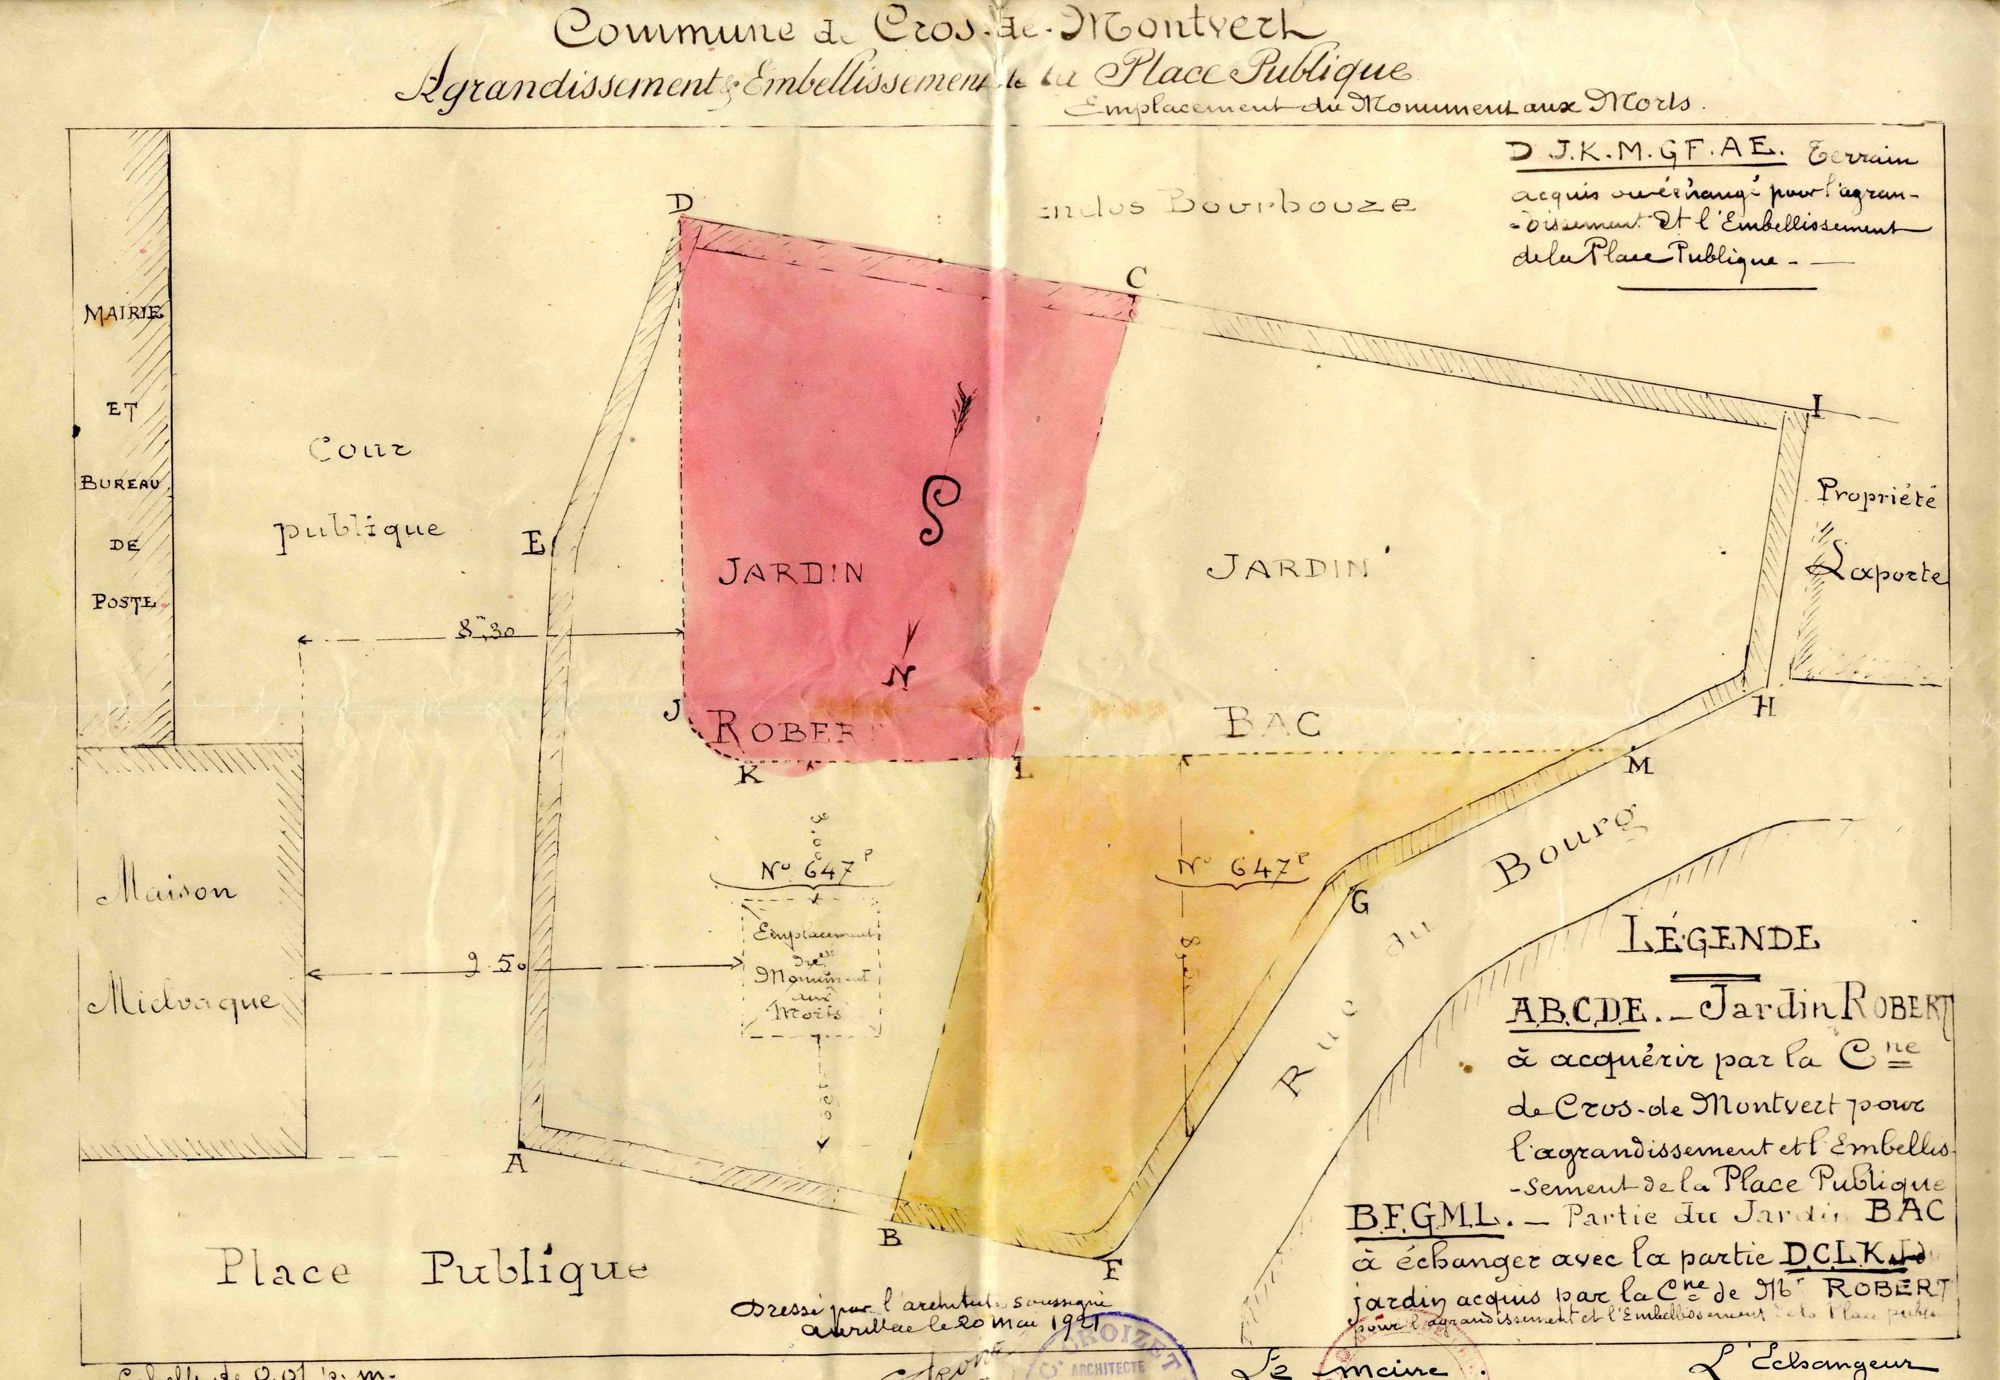 Commune de Cros-de-Montvert
Agrandissement & Embellissement de la Place Publique
Emplacement du Monument aux Morts.
D J.K.M.G F.A E. Terrain
acquis ou échangé pour l'agran-
-dissement et l'Embellissement
de la Place Publique -
enclos Bourbouze
D
C
I
MAIRIE
ET
BUREAU
DE
POSTE
Cour
publique
E
S
JARDIN
JARDIN
Propriété
Laporte
8m,30
N
J
ROBERT
BAC
H
K
L
M
3.00
No 647 P
No 647 P
Emplacement
du
Monument
aux
Morts
G
Rue du Bourg
Maison
Mielvaque
9.50
A
B
F
Place Publique
LÉGENDE
A.B.C.D.E. - Jardin ROBERT
à acquérir par la Cne
de Cros-de Montvert pour
l'agrandissement et l'Embellis-
-sement de la Place Publique
B.F.G.M.L. - Partie du Jardin BAC
à échanger avec la partie D.C.L.K.J du
jardin acquis par la Cne de Mr ROBERT
pour l'agrandissement et l'Embellissement de la Place publique
Dressé par l'architecte soussigné
Aurillac le 20 mai 1921
CROIZET
ARCHITECTE
Echelle de 0,01 p. m.
Le maire.
L'Echangeur